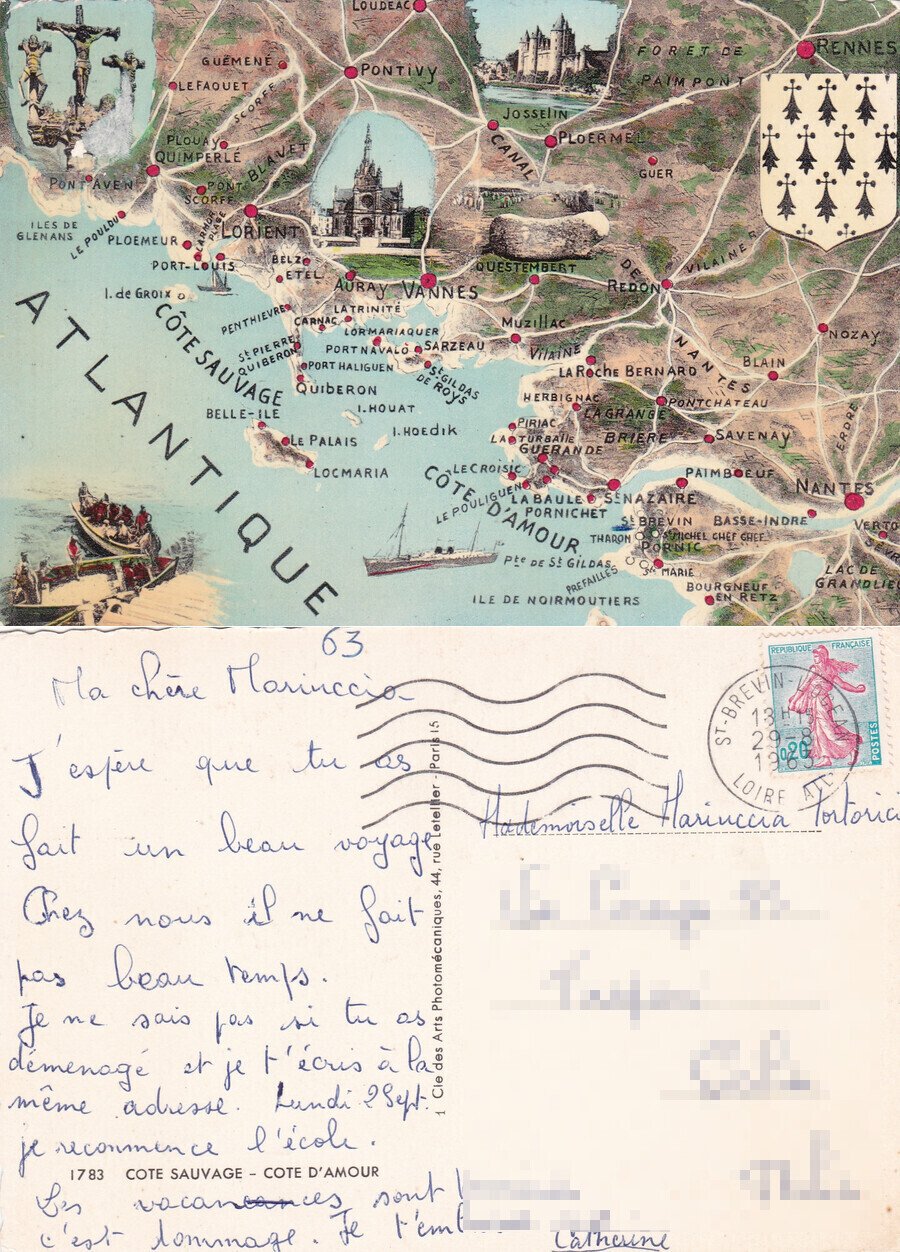 LOUDEAC
RENNES
GUÉMENÉ
PONTIVY
FORET DE
PAIMPONT
LE FAOUET
SCORFF
JOSSELIN
PLOERMEL
PLOUAY
QUIMPERLÉ
BLAVET
CANAL
GUER
PONT AVEN
PONT
SCORFF
ILES DE
GLENANS
LE POULDU
PLOEMEUR
LARMOR
PLAGE
LORIENT
DE
NANTES
VILAINE
PORT-LOUIS
BELZ
ETEL
AURAY
VANNES
QUESTEMBERT
REDON
I. de GROIX
PENTHIEVRE
CARNAC
LA TRINITÉ
LORMARIAQUER
MUZILLAC
NOZAY
CÔTE SAUVAGE
ST PIERRE
QUIBERON
PORT NAVALO
SARZEAU
VILAINE
PORT HALIGUEN
ST GILDAS
DE ROYS
LA ROCHE BERNARD
BLAIN
QUIBERON
HERBIGNAC
LA GRANGE
PONTCHATEAU
BELLE-ILE
I. HOUAT
PIRIAC
ERDRE
I. HOEDIK
LA TURBALLE
BRIÈRE
SAVENAY
LE PALAIS
GUERANDE
LOCMARIA
LE CROISIC
PAIMBŒUF
LE POULIGUEN
LA BAULE
ST NAZAIRE
NANTES
ATLANTIQUE
CÔTE
D'AMOUR
PORNICHET
ST BREVIN
BASSE-INDRE
VERTO
THARON
ST MICHEL CHEF CHEF
SÈVR
PORNIC
Pte DE ST GILDAS
PREFAILLES
Ste MARIE
LAC DE
GRANDLIEU
BOURGNEUF
EN RETZ
ILE DE NOIRMOUTIERS
63
Ma chère Mariuccia
J'espère que tu as
fait un beau voyage
Chez nous il ne fait
pas beau temps.
Je ne sais pas si tu as
déménagé et je t'écris à la
même adresse. Lundi 2 Sept.
je recommence l'école.
1783 COTE SAUVAGE - COTE D'AMOUR
Les vacances sont
c'est dommage. Je t'em
Catherine
1 Cie des Arts Photomécaniques, 44, rue Letellier - Paris 15
REPUBLIQUE FRANÇAISE
0,20
POSTES
ST-BREVIN-L'OCEAN
13H15
29-8
1963
LOIRE ATLE
Mademoiselle Mariuccia Tortorici